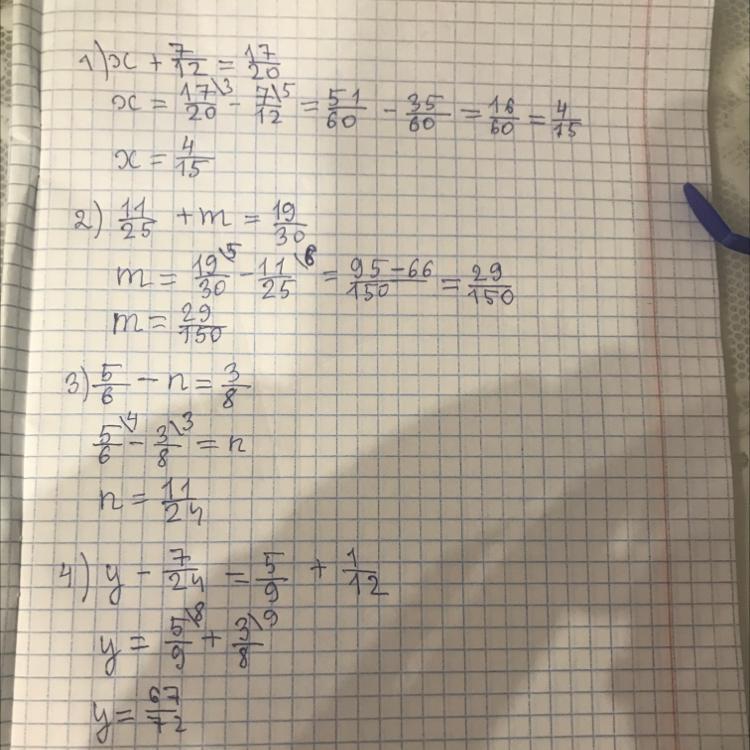 1) x + 7/12 = 17/20
x = 17\3/20 - 7\5/12 = 51/60 - 35/60 = 16/60 = 4/15
x = 4/15
2) 11/25 + m = 19/30
m = 19\5/30 - 11\6/25 = 95-66/150 = 29/150
m = 29/150
3) 5/6 - n = 3/8
5\4/6 - 3\3/8 = n
n = 11/24
4) y - 7/24 = 5/9 + 1/12
y = 5\8/9 + 3\9/8
y = 67/72